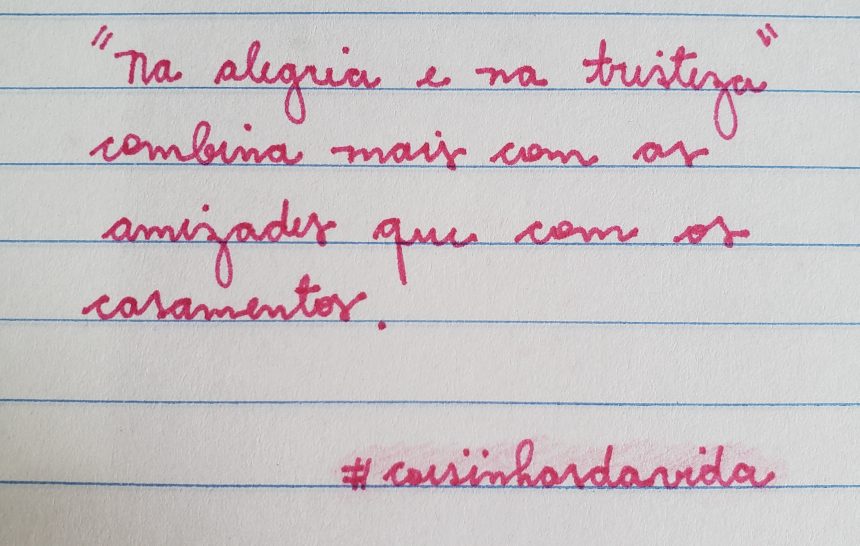 "Na alegria e na tristeza"
combina mais com as
amizades que com os
casamentos.
#coisinhasdavida